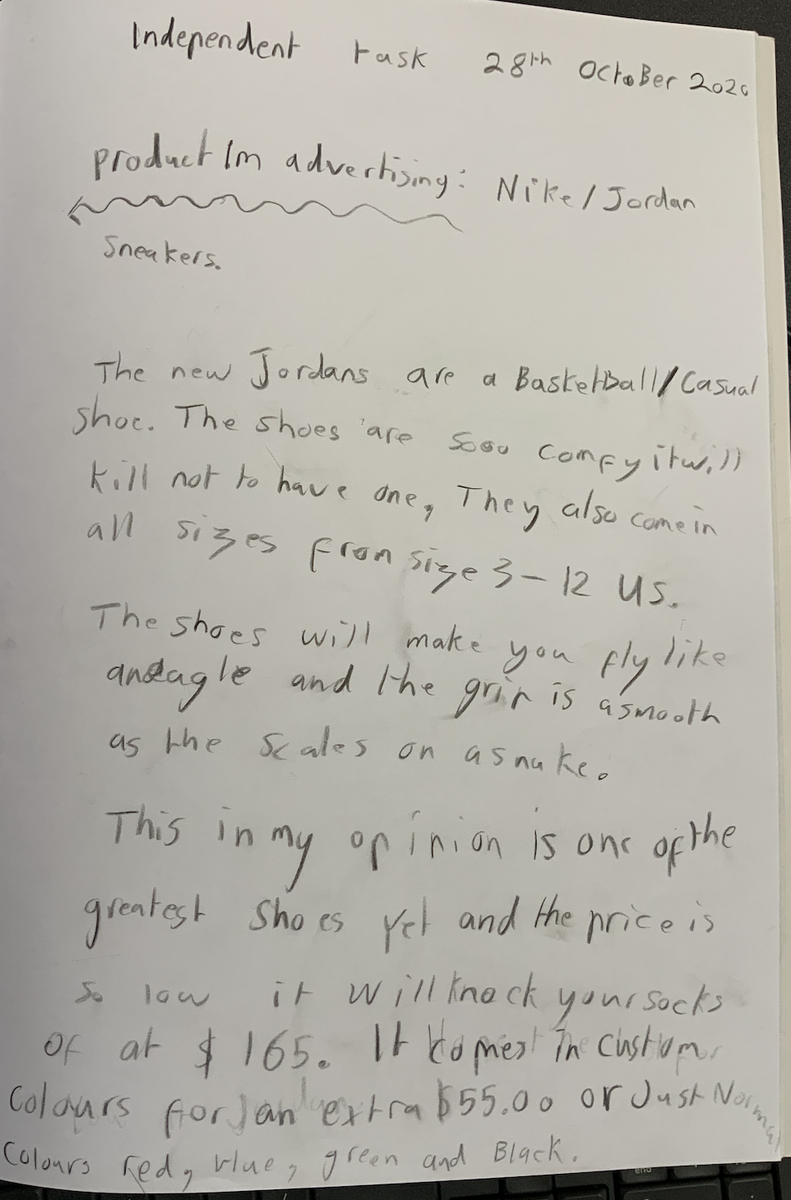 Independent task 28th OctoBer 2020
product Im advertising: Nike/Jordan
Sneakers.
The new Jordans are a BasketBall/Casual
shoe. The shoes are sooo comfy it will
kill not to have one, They also come in
all sizes from size 3-12 US.
The shoes will make you fly like
an eagle and the grip is a smooth
as the scales on a snake.
This in my opinion is one of the
greatest shoes yet and the price is
so low it will knock your socks
of at $165. It comes in custom
colours for an extra $55.00 or Just Normal
Colours red, blue, green and Black.